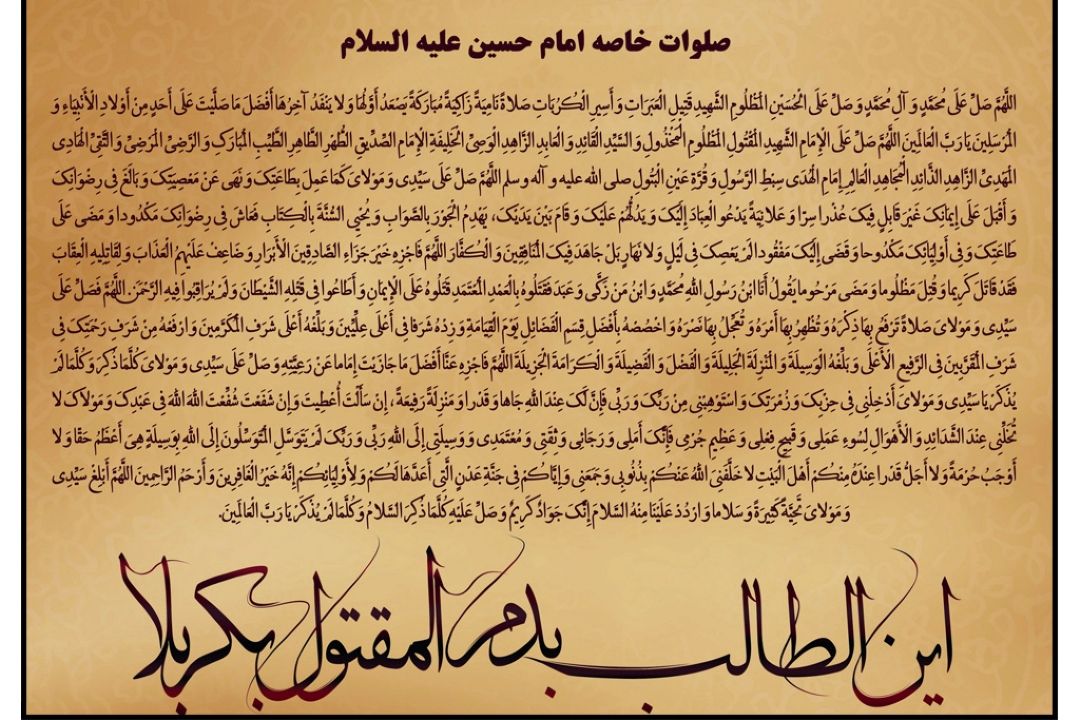 صلوات خاصه امام حسین علیه السلام
اللَّهُمَّ صَلِّ عَلَى مُحَمَّدٍ وَ آلِ مُحَمَّدٍ وَ صَلِّ عَلَى الْحُسَيْنِ الْمَظْلُومِ الشَّهِيدِ قَتِيلِ الْعَبَرَاتِ وَ أَسِيرِ الْكُرُبَاتِ صَلَاةً نَامِيَةً زَاكِيَةً مُبَارَكَةً يَصْعَدُ أَوَّلُهَا وَ لَا يَنْفَدُ آخِرُهَا أَفْضَلَ مَا صَلَّيْتَ عَلَى أَحَدٍ مِنْ أَوْلَادِ الْأَنْبِيَاءِ وَ
الْمُرْسَلِينَ يَا رَبَّ الْعَالَمِينَ اللَّهُمَّ صَلِّ عَلَى الْإِمَامِ الشَّهِيدِ الْمَقْتُولِ الْمَظْلُومِ الْمَخْذُولِ وَ السَّيِّدِ الْقَائِدِ وَ الْعَابِدِ الزَّاهِدِ الْوَصِيِّ الْخَلِيفَةِ الْإِمَامِ الصِّدِّيقِ الطُّهْرِ الطَّاهِرِ الطَّيِّبِ الْمُبَارَكِ وَ الرَّضِيِّ الْمَرْضِيِّ وَ التَّقِيِّ الْهَادِي
الْمَهْدِيِّ الزَّاهِدِ الذَّائِدِ الْمُجَاهِدِ الْعَالِمِ إِمَامِ الْهُدَى سِبْطِ الرَّسُولِ وَ قُرَّةِ عَيْنِ الْبَتُولِ صلی الله علیه و آله و سلم اللَّهُمَّ صَلِّ عَلَى سَيِّدِی وَ مَوْلَایَ كَمَا عَمِلَ بِطَاعَتِکَ وَ نَهَى عَنْ مَعْصِيَتِکَ وَ بَالَغَ فِی رِضْوَانِکَ
وَ أَقْبَلَ عَلَى إِيمَانِکَ غَيْرَ قَابِلٍ فِيکَ عُذْرا سِرّا وَ عَلَانِيَةً يَدْعُو الْعِبَادَ إِلَيْکَ وَ يَدُلُّهُمْ عَلَيْکَ وَ قَامَ بَيْنَ يَدَيْکَ، يَهْدِمُ الْجَوْرَ بِالصَّوَابِ وَ يُحْيِی السُّنَّةَ بِالْكِتَابِ فَعَاشَ فِی رِضْوَانِکَ مَكْدُودا وَ مَضَى عَلَى
طَاعَتِکَ وَ فِی أَوْلِيَائِکَ مَكْدُوحا وَ قَضَى إِلَيْکَ مَفْقُودا لَمْ يَعْصِکَ فِی لَيْلٍ وَ لا نَهَارٍ بَلْ جَاهَدَ فِيکَ الْمُنَافِقِينَ وَ الْكُفَّارَ اللَّهُمَّ فَاجْزِهِ خَيْرَ جَزَاءِ الصَّادِقِينَ الْأَبْرَارِ وَ ضَاعِفْ عَلَيْهِمُ الْعَذَابَ وَ لِقَاتِلِيهِ الْعِقَابَ
فَقَدْ قَاتَلَ كَرِيما وَ قُتِلَ مَظْلُوما وَ مَضَى مَرْحُوما يَقُولُ أَنَا ابْنُ رَسُولِ اللَّهِ مُحَمَّدٍ وَ ابْنُ مَنْ زَكَّى وَ عَبَدَ فَقَتَلُوهُ بِالْعَمْدِ الْمُعْتَمَدِ قَتَلُوهُ عَلَى الْإِيمَانِ وَ أَطَاعُوا فِی قَتْلِهِ الشَّيْطَانَ وَ لَمْ يُرَاقِبُوا فِيهِ الرَّحْمَنَ. اللَّهُمَّ فَصَلِّ عَلَى
سَيِّدِی وَ مَوْلَایَ صَلَاةً تَرْفَعُ بِهَا ذِكْرَهُ وَ تُظْهِرُ بِهَا أَمْرَهُ وَ تُعَجِّلُ بِهَا نَصْرَهُ وَ اخْصُصْهُ بِأَفْضَلِ قِسَمِ الْفَضَائِلِ يَوْمَ الْقِيَامَةِ وَ زِدْهُ شَرَفا فِی أَعْلَى عِلِّيِّينَ وَ بَلِّغْهُ أَعْلَى شَرَفِ الْمُكَرَّمِينَ وَ ارْفَعْهُ مِنْ شَرَفِ رَحْمَتِکَ فِی
شَرَفِ الْمُقَرَّبِينَ فِی الرَّفِيعِ الْأَعْلَى وَ بَلِّغْهُ الْوَسِيلَةَ وَ الْمَنْزِلَةَ الْجَلِيلَةَ وَ الْفَضْلَ وَ الْفَضِيلَةَ وَ الْكَرَامَةَ الْجَزِيلَةَ اللَّهُمَّ فَاجْزِهِ عَنَّا أَفْضَلَ مَا جَازَيْتَ إِمَاما عَنْ رَعِيَّتِهِ وَ صَلِّ عَلَى سَيِّدِی وَ مَوْلَایَ كُلَّمَا ذُكِرَ وَ كُلَّمَا لَمْ
يُذْكَرْ يَا سَيِّدِی وَ مَوْلَایَ أَدْخِلْنِی فِی حِزْبِکَ وَ زُمْرَتِکَ وَ اسْتَوْهِبْنِی مِنْ رَبِّکَ وَ رَبِّی فَإِنَّ لَکَ عِنْدَ اللَّهِ جَاها وَ قَدْرا وَ مَنْزِلَةً رَفِيعَةً، إِنْ سَأَلْتَ أُعْطِيتَ وَ إِنْ شَفَعْتَ شُفِّعْتَ اللَّهَ اللَّهَ فِی عَبْدِکَ وَ مَوْلَاکَ لا
تُخَلِّنِی عِنْدَ الشَّدَائِدِ وَ الْأَهْوَالِ لِسُوءِ عَمَلِی وَ قَبِيحِ فِعْلِی وَ عَظِيمِ جُرْمِی فَإِنَّکَ أَمَلِی وَ رَجَائِی وَ ثِقَتِی وَ مُعْتَمَدِی وَ وَسِيلَتِی إِلَى اللَّهِ رَبِّی وَ رَبِّکَ لَمْ يَتَوَسَّلِ الْمُتَوَسِّلُونَ إِلَى اللَّهِ بِوَسِيلَةٍ هِیَ أَعْظَمُ حَقّا وَ لا
أَوْجَبُ حُرْمَةً وَ لا أَجَلُّ قَدْرا عِنْدَهُ مِنْكُمْ أَهْلَ الْبَيْتِ لا خَلَّفَنِیَ اللَّهُ عَنْكُمْ بِذُنُوبِی وَ جَمَعَنِی وَ إِيَّاكُمْ فِی جَنَّةِ عَدْنٍ الَّتِی أَعَدَّهَا لَكُمْ وَ لِأَوْلِيَائِكُمْ إِنَّهُ خَيْرُ الْغَافِرِينَ وَ أَرْحَمُ الرَّاحِمِينَ اللَّهُمَّ أَبْلِغْ سَيِّدِی
وَ مَوْلَایَ تَحِيَّةً كَثِيرَةً وَ سَلاما وَ ارْدُدْ عَلَيْنَا مِنْهُ السَّلامَ إِنَّکَ جَوَادٌ كَرِيمٌ وَ صَلِّ عَلَيْهِ كُلَّمَا ذُكِرَ السَّلامُ وَ كُلَّمَا لَمْ يُذْكَرْ يَا رَبَّ الْعَالَمِينَ.
این الطالب بدم المقتول بکربلا